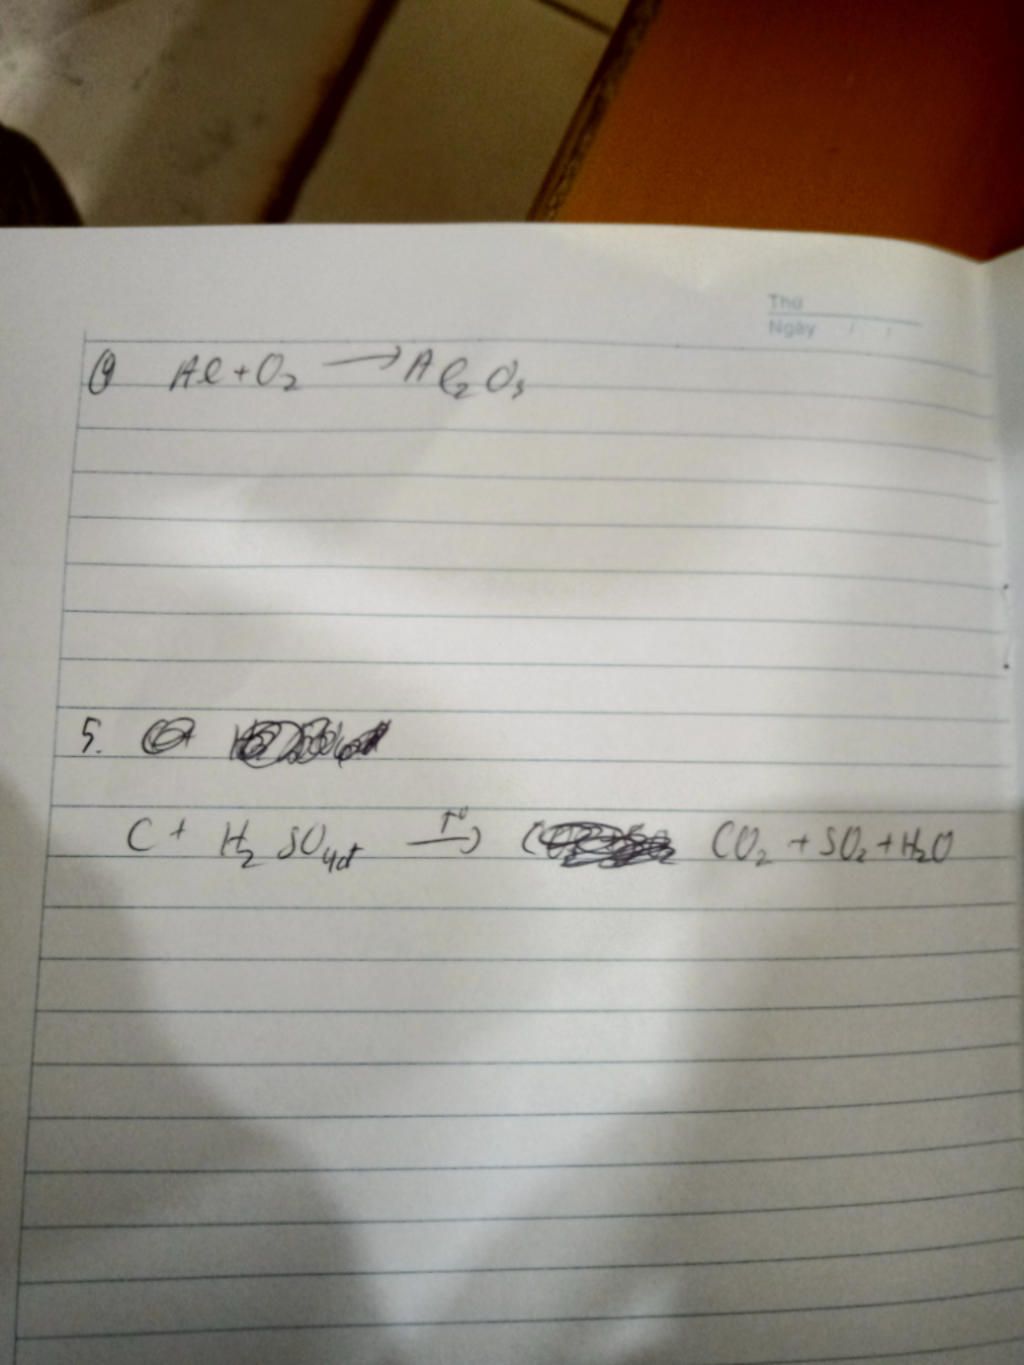 Thứ
Ngày / /
4 Al + O₂ → Al₂O₃
5.
C + H₂SO₄đ —t⁰→ CO₂ + SO₂ + H₂O